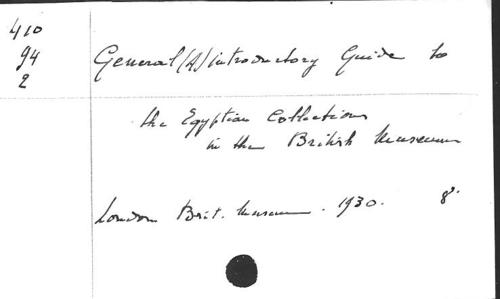 410
94
2
General (A) introductory Guide to
the Egyptian Collections
in the British Museum
London Brit. Museum. 1930. 8°